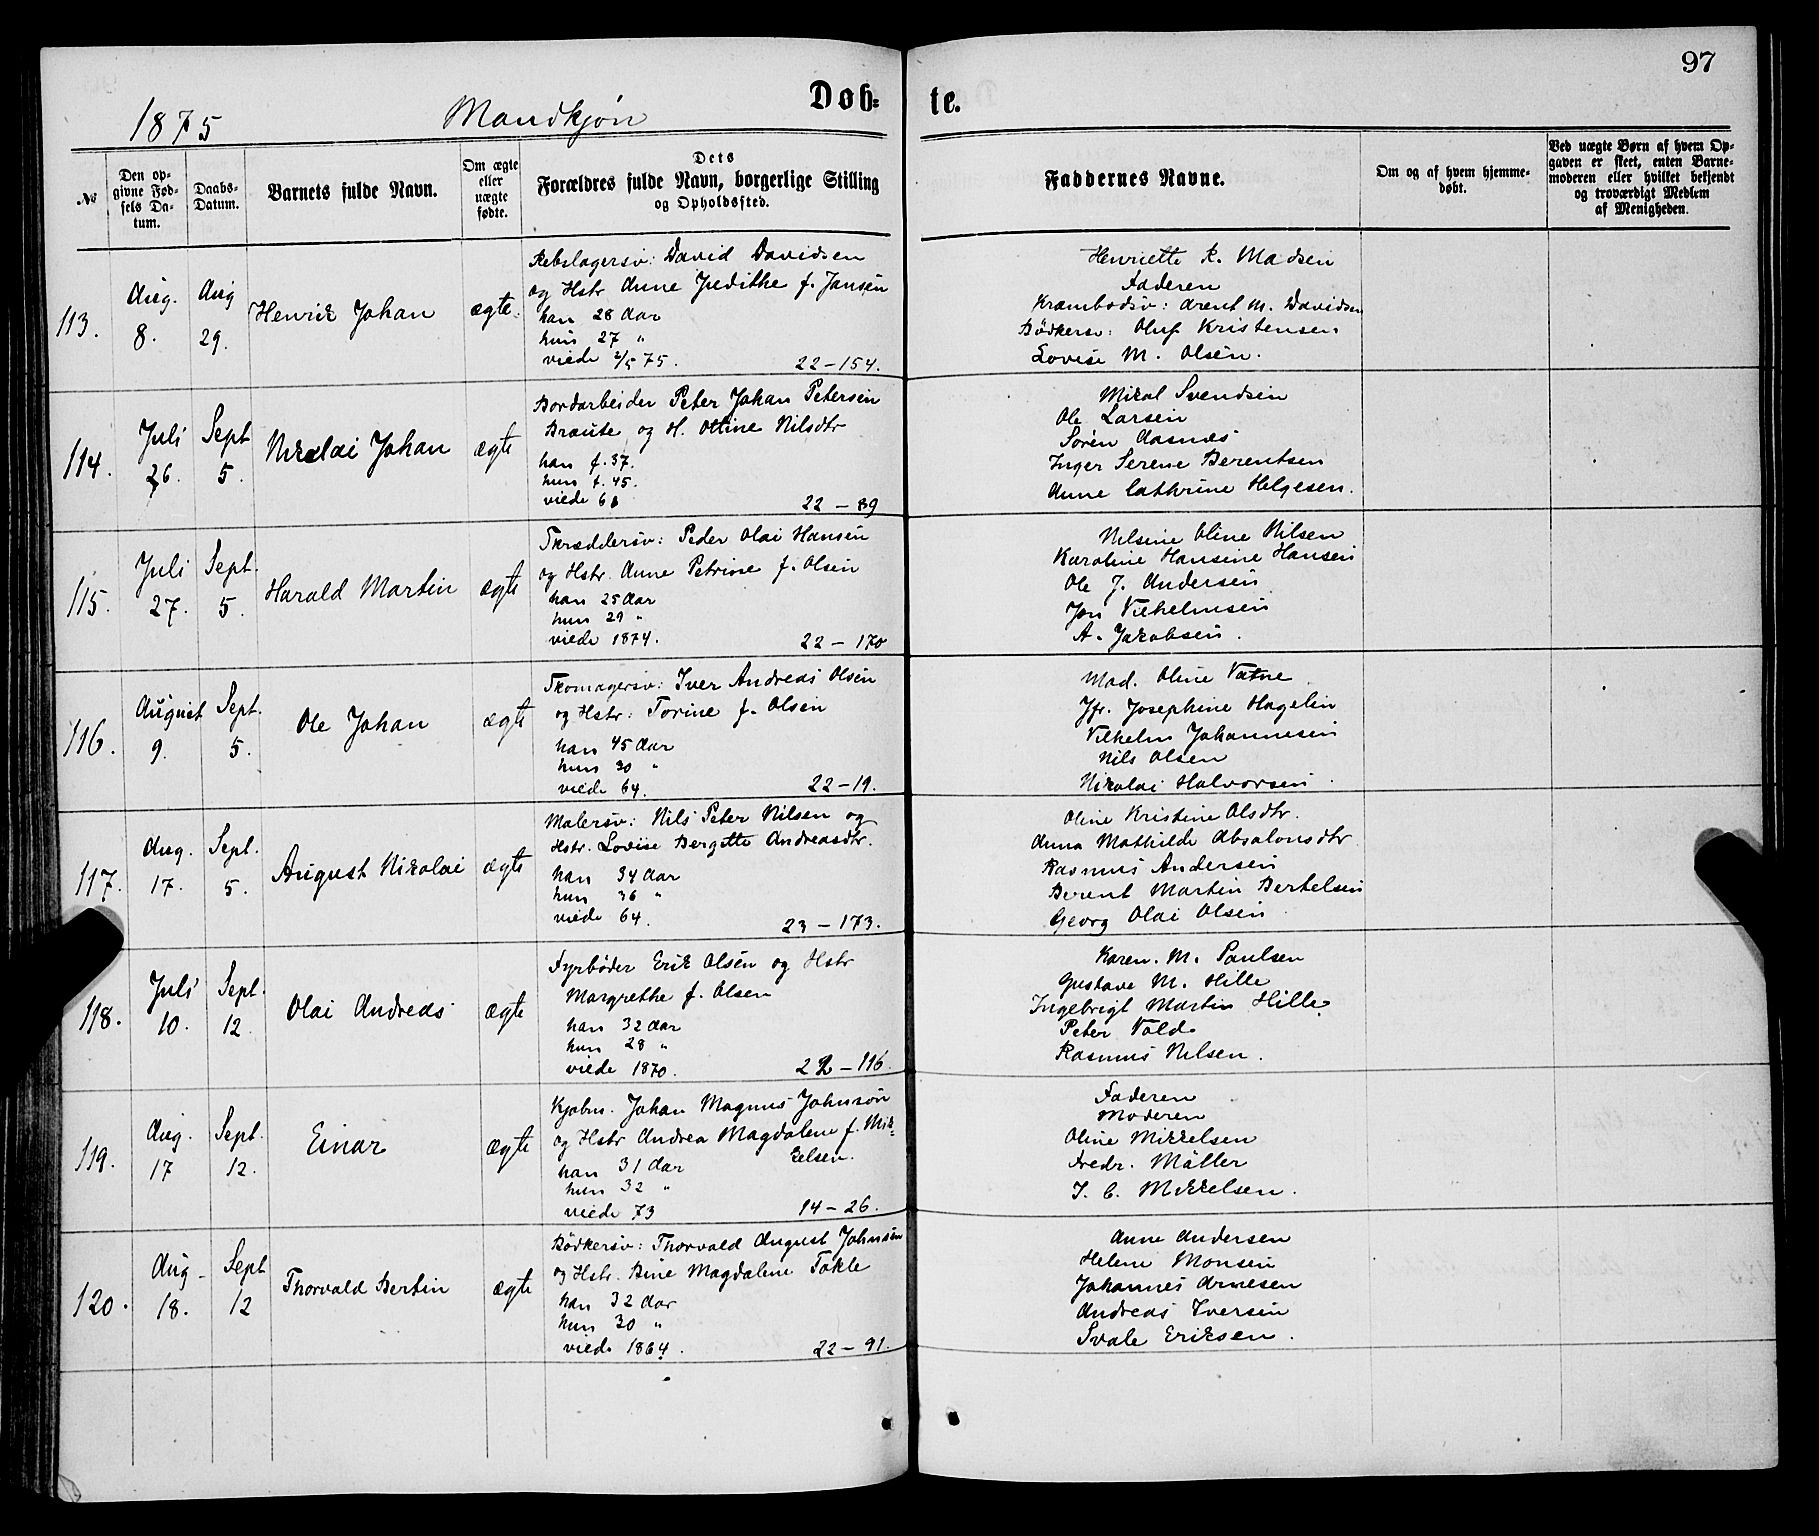 97
Døb-
te.
1875
Mandkjøn
No
Den op-
givne Fød-
sels Da-
tum.
Daabs-
Datum.
Barnets fulde Navn.
Om ægte
eller
uægte
fødte.
Dets
Forældres fulde Navn, borgerlige Stilling
og Opholdssted.
Faddernes Navne.
Om og af hvem hjemme-
døbt.
Ved uægte Børn af hvem Op-
gaven er skeet, enten Barne-
moderen eller hvilket bekjendt
og troværdigt Medlem
af Menigheden.
113.
Aug.
8.
Aug
29.
Henrik Johan
ægte.
Rebslagersv: David Davidsen
og Hstr Anne Jredithe f. Jansen
han 28 Aar
hun 27 "
viede 2/5 75.
22-154.
Henriette K. Madsen
Faderen
Krambodsv: Arent M. Davidsen
Bødkersv: Oluf Kristensen
Lovise M. Olsen.
114.
Juli
26.
Sept
5.
Nikolai Johan
ægte
Bordarbeider Peter Johan Petersen
Braute og H. Olline Nilsdtr
han f. 37.
hun f. 45.
viede 68
22-89
Mikal Svendsen
Ole Larsen
Søren Aasnæs
Inger Serene Berentsen
Anne Cathrine Helgesen.
115.
Juli
27.
Sept.
5.
Harald Martin
ægte
Skræddersv: Peder Olai Hansen
og Hstr. Anne Petrine f. Olsen
han 25 Aar
hun 29 "
viede 1874.
22-170
Nilsine Oline Nilsen
Karoline Hansine Hansen
Ole J. Andersen
Jon Vilhelmsen
A. Jakobsen.
116.
August
9.
Sept.
5.
Ole Johan
ægte
Skomagersv: Iver Andreas Olsen
og Hstr: Torine f. Olsen
han 45 Aar
hun 30 "
viede 64.
22-19.
Mad. Oline Vatne
Jfr. Josephine Hagelin
Vilhelm Johannesen
Nils Olsen
Nikolai Halvorsen
117.
Aug.
17.
Sept.
5.
August Nikolai
ægte
Malersv: Nils Peter Nilsen og
Hstr. Lovise Bergitte Andreasdtr.
han 34 Aar
hun 36 "
viede 64.
23-173.
Oline Kristine Olsdtr.
Anna Mathilde Absalonsdtr
Rasmus Andersen
Berent Martin Bertelsen
Georg Olai Olsen
118.
Juli
10.
Sept.
12.
Olai Andreas
ægte
Fyrbøder Erik Olsen og Hstr
Margrethe f. Olsen
han 32 Aar
hun 28 "
viede 1870.
22-116.
Karen. M. Paulsen
Gustave M. Hille
Ingebrigt Martin Hille
Peter Vold
Rasmus Nilsen.
119.
Aug.
17
Sept.
12.
Einar
ægte
Kjøbm. Johan Magnus Johnsøn
og Hstr Andrea Magdalene f. Mik-
kelsen.
han 31 Aar
hun 32 "
viede 73
14-26.
Faderen
Moderen
Oline Mikkelsen
Fredr. Møller
I. C. Mikkelsen.
120.
Aug.
18.
Sept
12
Thorvald Bertin
ægte
Bødkersv: Thorvald August Johnsen
og Hstr. Bine Magdalene Tokle
han 32 Aar
hun 30 "
viede 1864.
22-91.
Anne Andersen
Helene Monsen
Johannes Arnesen
Andreas Iversen
Svale Eriksen.